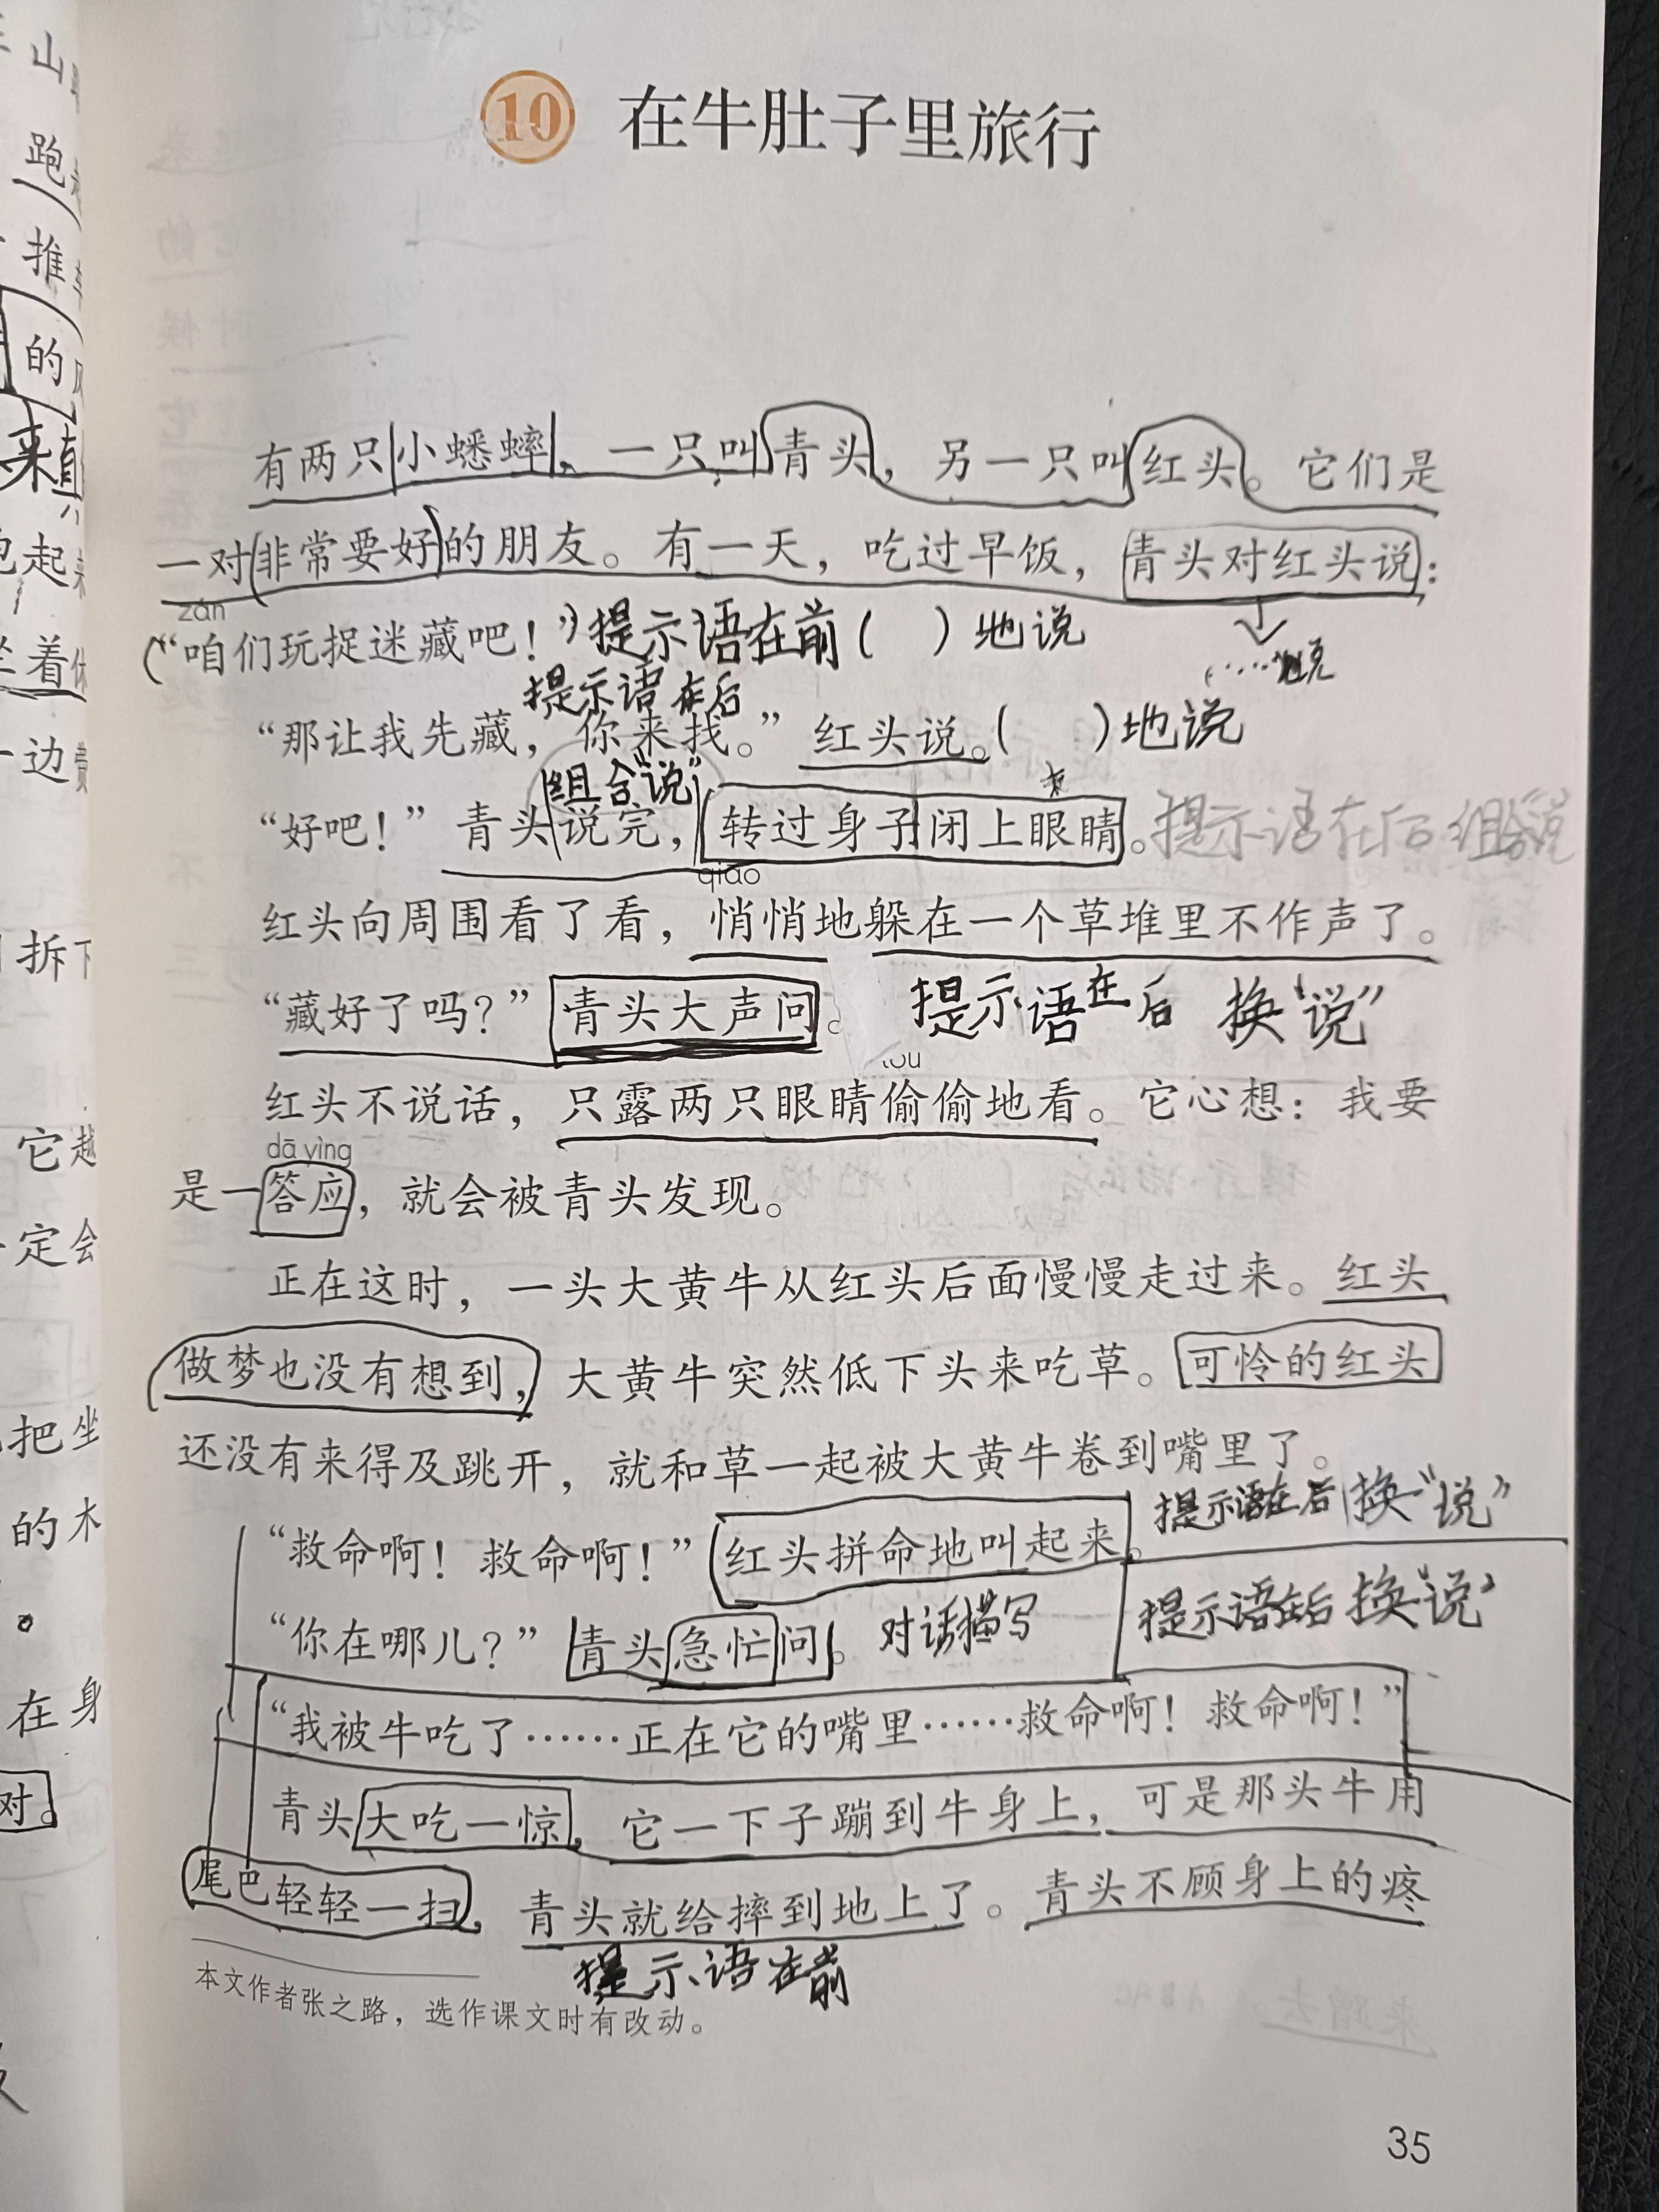 10 在牛肚子里旅行
有两只小蟋蟀，一只叫青头，另一只叫红头。它们是
一对非常要好的朋友。有一天，吃过早饭，青头对红头说：
zán
“咱们玩捉迷藏吧！” 提示语在前（ ）地说
提示语在后
“那让我先藏，你来找。”红头说。（ ）地说
组合“说”
“好吧！”青头说完，转过身子闭上眼睛。提示语在后 组合说
qiāo
红头向周围看了看，悄悄地躲在一个草堆里不作声了。
“藏好了吗？”青头大声问。 提示语在后 换“说”
红头不说话，只露两只眼睛偷偷地看。它心想：我要
dā ying
是一答应，就会被青头发现。
正在这时，一头大黄牛从红头后面慢慢走过来。红头
做梦也没有想到，大黄牛突然低下头来吃草。可怜的红头
还没有来得及跳开，就和草一起被大黄牛卷到嘴里了。
提示语在后 换“说”
“救命啊！救命啊！”红头拼命地叫起来。
“你在哪儿？”青头急忙问。 对话描写 提示语在后 换“说”
“我被牛吃了……正在它的嘴里……救命啊！救命啊！”
青头大吃一惊，它一下子蹦到牛身上，可是那头牛用
尾巴轻轻一扫，青头就给摔到地上了。青头不顾身上的疼
提示语在前
本文作者张之路，选作课文时有改动。
35
山
跑
推
的
来
起
着
一边
拆下
它越
定会
把坐
的木
在身
对。